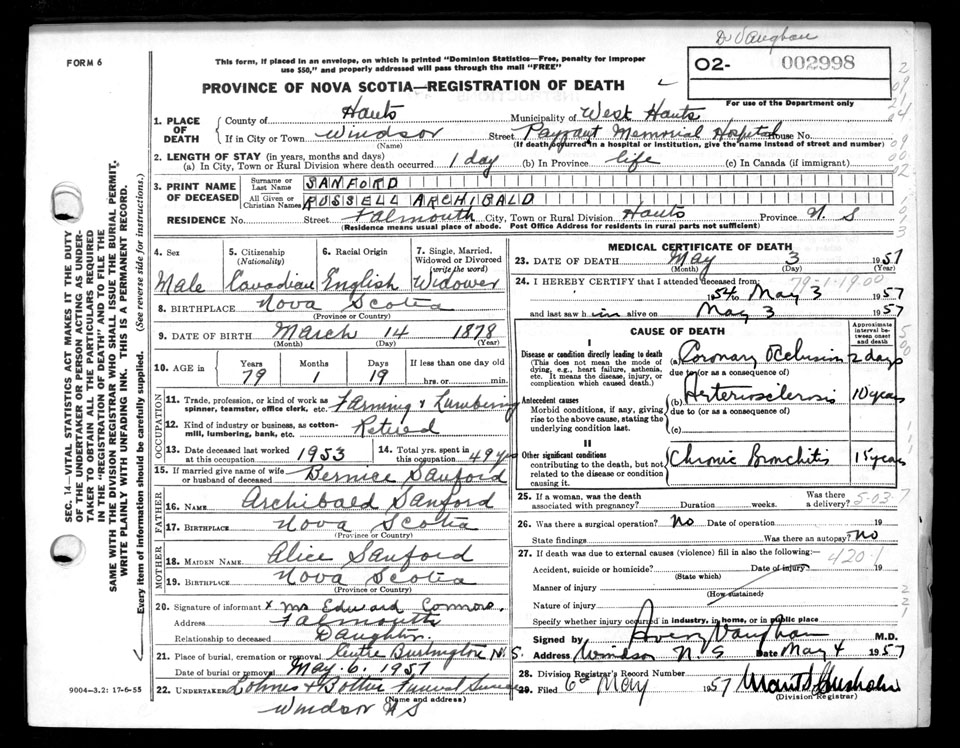 Dr Vaughan
FORM 6
This form, if placed in an envelope, on which is printed "Dominion Statistics—Free, penalty for improper
use $50," and properly addressed will pass through the mail "FREE"
02- 002998
For use of the Department only
PROVINCE OF NOVA SCOTIA—REGISTRATION OF DEATH
1. PLACE OF DEATH
County of Hants Municipality of West Hants
If in City or Town Windsor Street Payzant Memorial Hospital House No.
(Name) (If death occurred in a hospital or institution, give the name instead of street and number)
2. LENGTH OF STAY (in years, months and days)
(a) In City, Town or Rural Division where death occurred 1 day (b) In Province life (c) In Canada (if immigrant)
3. PRINT NAME OF DECEASED
Surname or Last Name SANFORD
All Given or Christian Names RUSSELL ARCHIBALD
RESIDENCE No. Street Falmouth City, Town or Rural Division Hants Province N.S
(Residence means usual place of abode. Post Office Address for residents in rural parts not sufficient)
4. Sex 5. Citizenship (Nationality) 6. Racial Origin 7. Single, Married, Widowed or Divorced (write the word)
Male Canadian English Widower
8. BIRTHPLACE Nova Scotia
(Province or Country)
9. DATE OF BIRTH March 14 1878
(Month) (Day) (Year)
10. AGE in Years Months Days If less than one day old
79 1 19 hrs. or min.
OCCUPATION
11. Trade, profession, or kind of work as spinner, teamster, office clerk, etc. Farming & Lumbering
12. Kind of industry or business, as cotton-mill, lumbering, bank, etc. Retired
13. Date deceased last worked at this occupation 1953 14. Total yrs. spent in this occupation 49 yrs
15. If married give name of wife or husband of deceased Bernice Sanford
FATHER
16. NAME Archibald Sanford
17. BIRTHPLACE Nova Scotia
(Province or Country)
MOTHER
18. MAIDEN NAME Alice Sanford
19. BIRTHPLACE Nova Scotia
(Province or Country)
20. Signature of informant x Mrs Edward Connors.
Address Falmouth
Relationship to deceased Daughter.
21. Place of burial, cremation or removal Burlington N.S.
Date of burial or removal May. 6. 1957
22. UNDERTAKER Funeral Service
(Name and address)
Windsor N S
9004-3.2: 17-6-55
MEDICAL CERTIFICATE OF DEATH
23. DATE OF DEATH May 3 1957
(Month) (Day) (Year)
24. I HEREBY CERTIFY that I attended deceased from: 79-1-19.00
1954 to May 3 1957
and last saw him alive on May 3 1957
CAUSE OF DEATH
Approximate interval between onset and death
I
Disease or condition directly leading to death (a) Coronary Occlusion 2 days
(This does not mean the mode of dying, e.g., heart failure, asthenia, etc. It means the disease, injury, or complication which caused death.)
due to (or as a consequence of)
Antecedent causes (b) Arteriosclerosis 10 years
Morbid conditions, if any, giving rise to the above cause, stating the underlying condition last.
due to (or as a consequence of)
(c)
II
Other significant conditions Chronic Bronchitis 15 years
contributing to the death, but not related to the disease or condition causing it.
25. If a woman, was the death associated with pregnancy? Duration weeks. Was there a delivery?
26. Was there a surgical operation? No Date of operation 19
State findings Was there an autopsy? No
27. If death was due to external causes (violence) fill in also the following:— 420.1
Accident, suicide or homicide? Date of injury 19
(State which)
Manner of injury
(How sustained)
Nature of injury
Specify whether injury occurred in industry, in home, or in public place
Signed by Avery Vaughan M.D.
Address Windsor N.S Date May 4 1957
28. Division Registrar's Record Number
29. Filed 6 May 1957
(Division Registrar)
SEC. 14—VITAL STATISTICS ACT MAKES IT THE DUTY
OF THE UNDERTAKER OR PERSON ACTING AS UNDER-
TAKER TO OBTAIN ALL THE PARTICULARS REQUIRED
IN THE "REGISTRATION OF DEATH" AND TO FILE THE
SAME WITH THE DIVISION REGISTRAR WHO SHALL ISSUE THE BURIAL PERMIT.
WRITE PLAINLY WITH UNFADING INK. THIS IS A PERMANENT RECORD.
Every item of information should be carefully supplied. (See reverse side for instructions.)